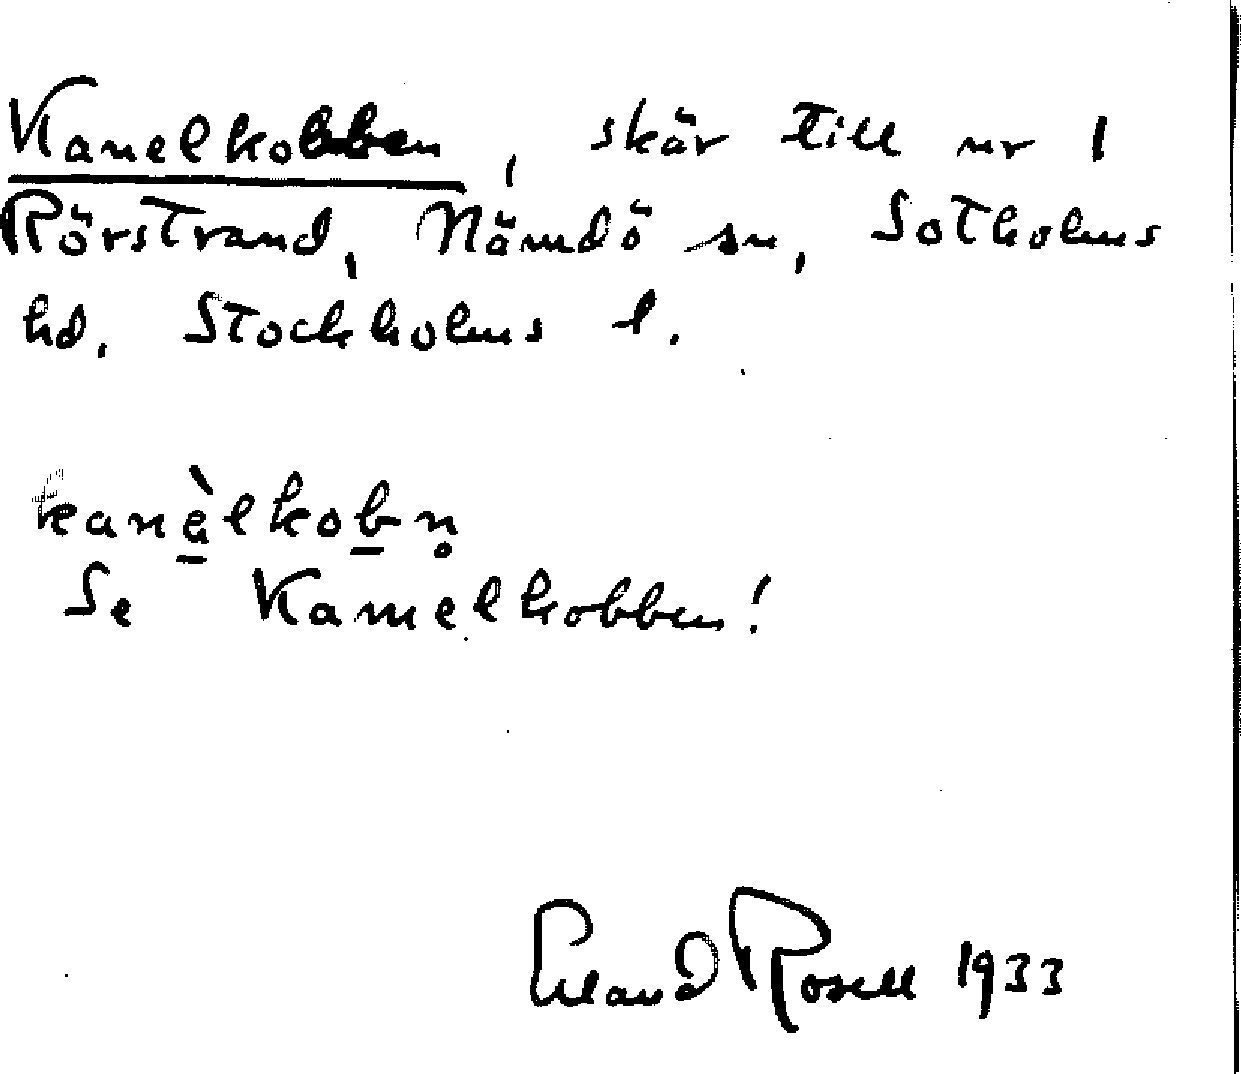 Kanelkobben, skär till nr 1
Rörstrand, Nämdö sn, Sotholms
hd. Stockholms l.
kanèlkobn̥
Se Kamelkobben!
Erland Rosell 1933